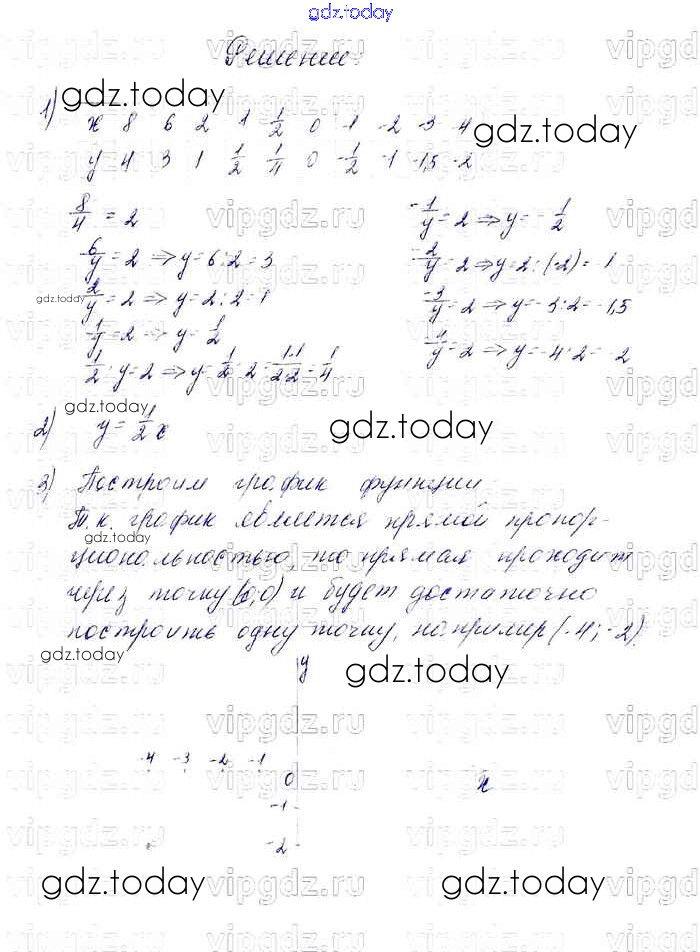 gdz.today
Решение:
1) x 8 6 2 1 1/2 0 -1 -2 -3 -4
y 4 3 1 1/2 1/4 0 -1/2 -1 -1,5 -2
8/4 = 2
6/y = 2 ⇒ y = 6:2 = 3
2/y = 2 ⇒ y = 2:2 = 1
1/y = 2 ⇒ y = 1/2
1/2 : y = 2 ⇒ y = 1/2 : 2 = 1·1/2·2 = 1/4
-1/y = 2 ⇒ y = -1/2
-2/y = 2 ⇒ y = 2:(-2) = -1
-3/y = 2 ⇒ y = -3:2 = -1,5
-4/y = 2 ⇒ y = -4:2 = -2
2) y = 1/2 x
3) Построим график функции.
Т.к. график является прямой пропор-
циональностью, то прямая проходит
через точку (0,0) и будет достаточно
построить одну точку, например (-4; -2).
y
-4 -3 -2 -1
0
x
-1
-2
gdz.today
gdz.today
gdz.today
gdz.today
gdz.today
gdz.today
gdz.today
gdz.today
gdz.today
gdz.today
vipgdz.ru